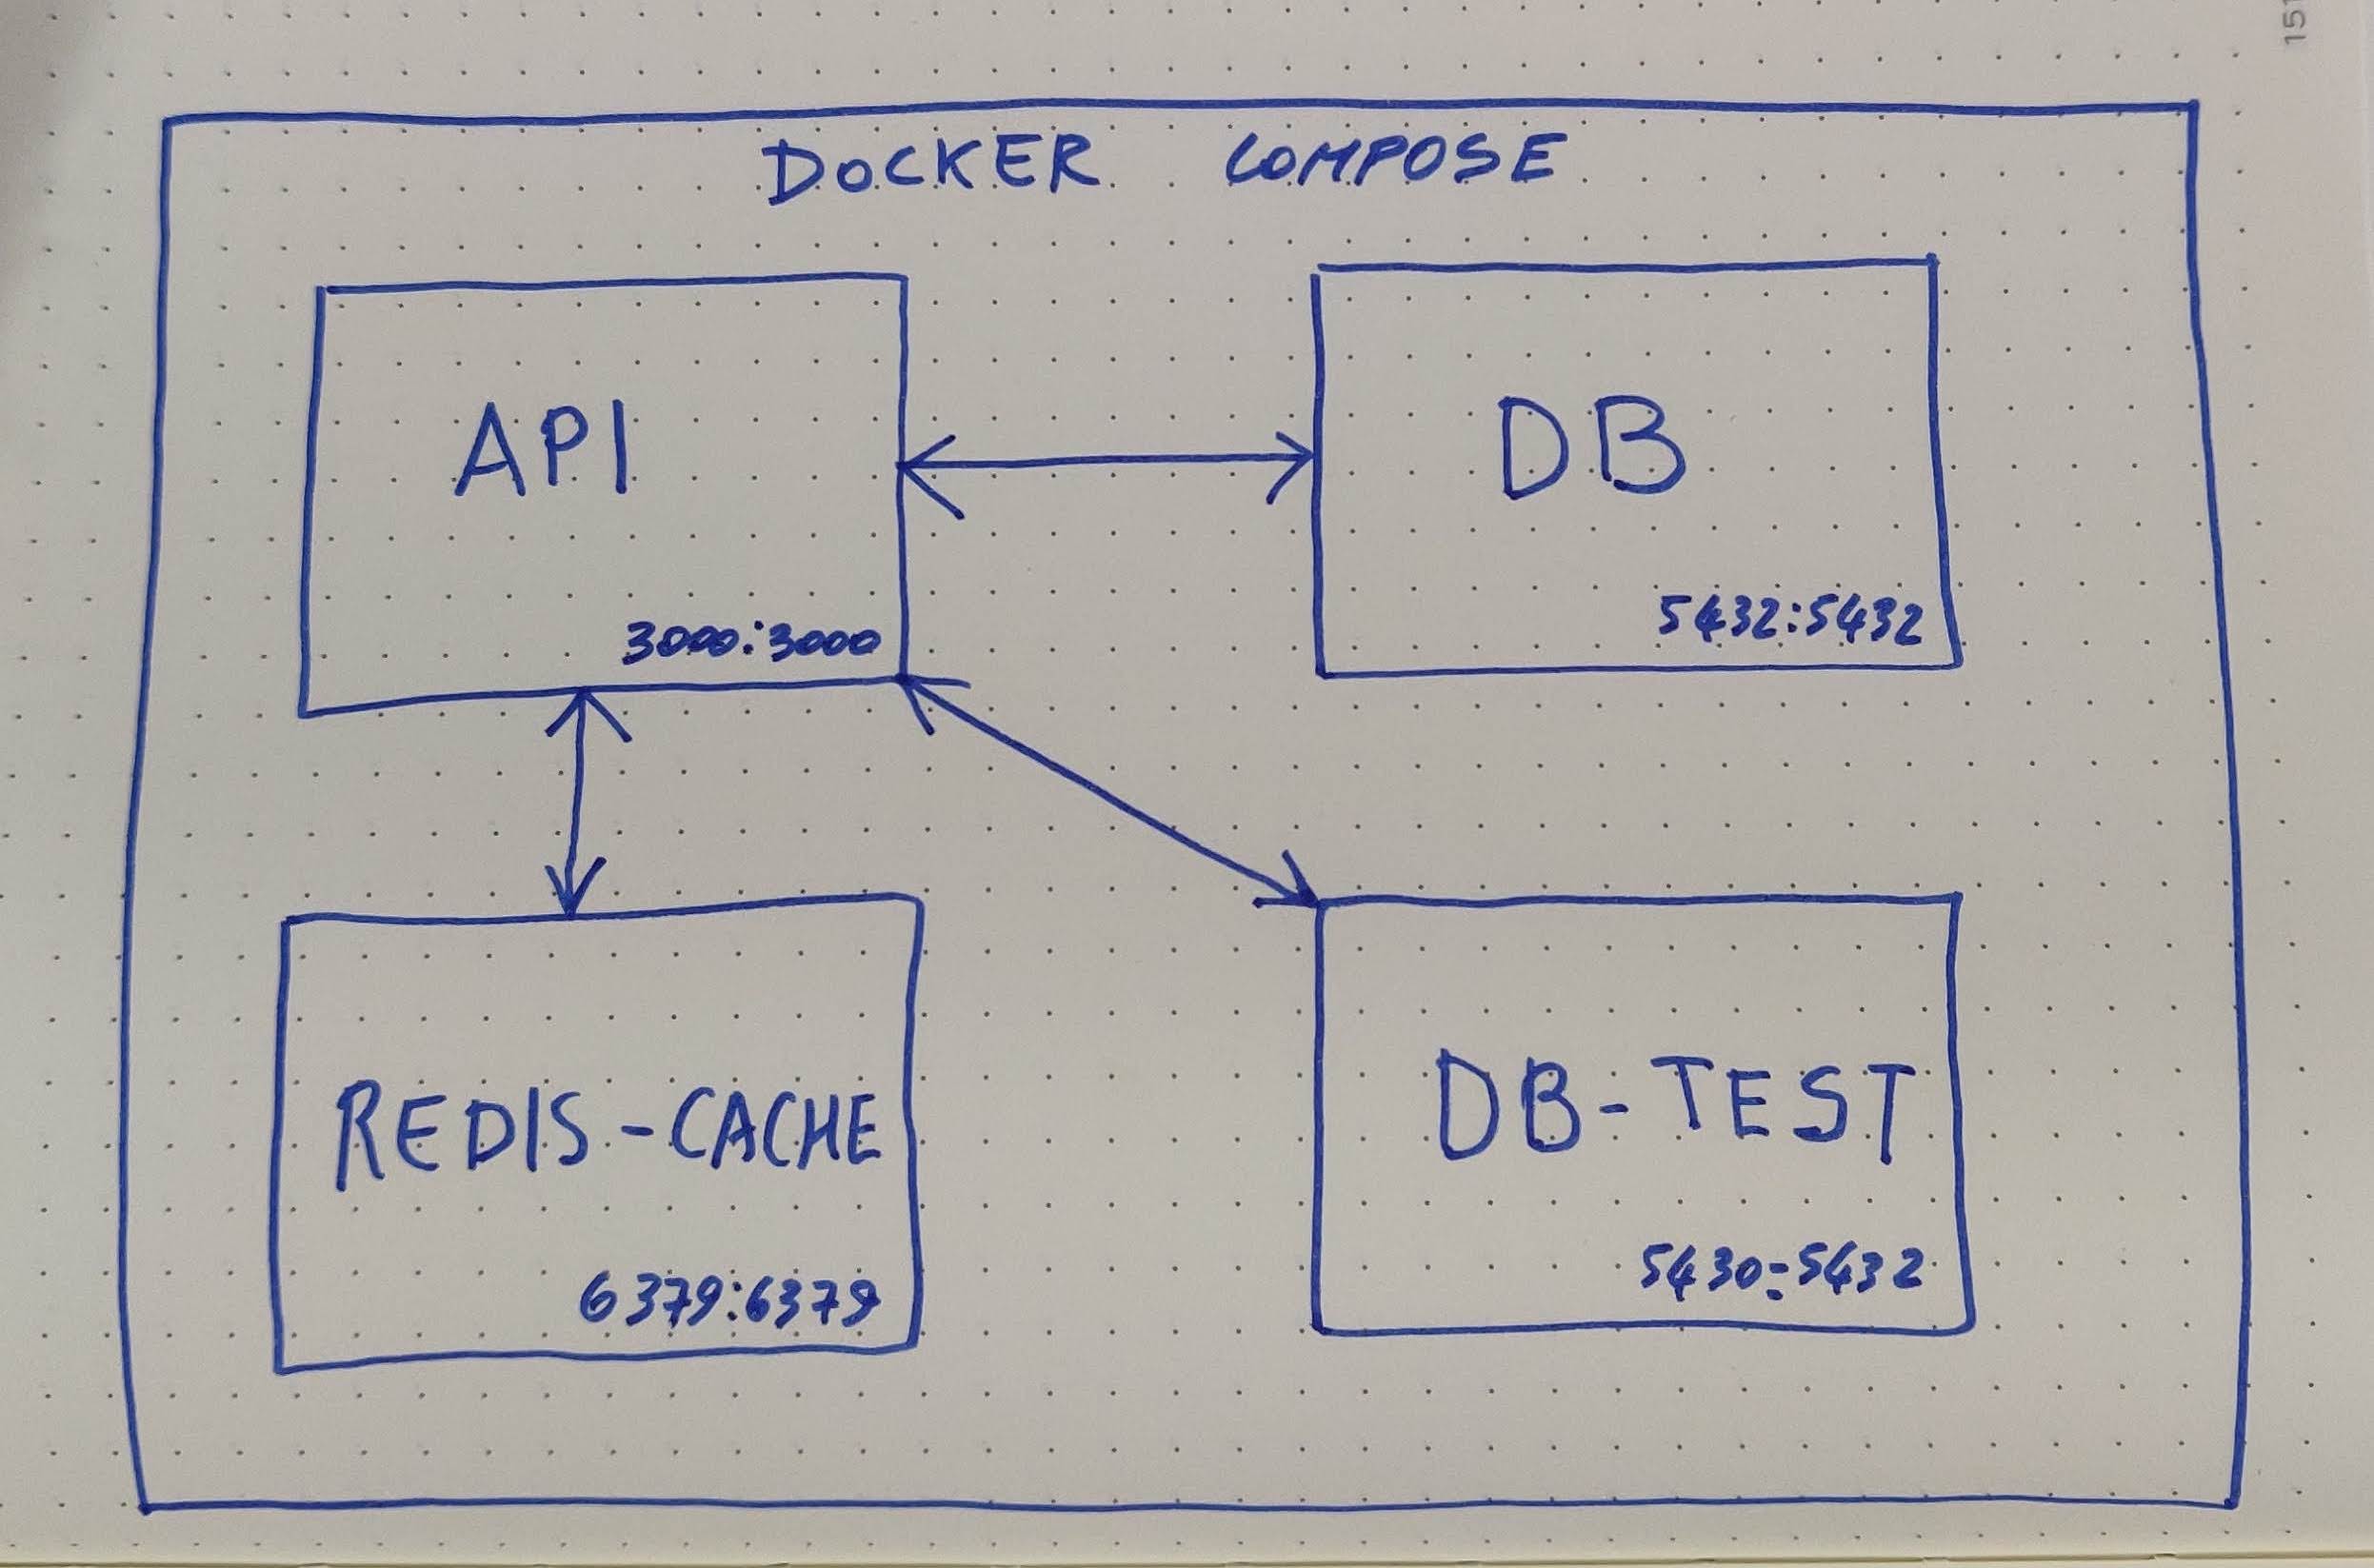 151
DOCKER COMPOSE
API
3000:3000
DB
5432:5432
REDIS-CACHE
6379:6379
DB-TEST
5430:5432